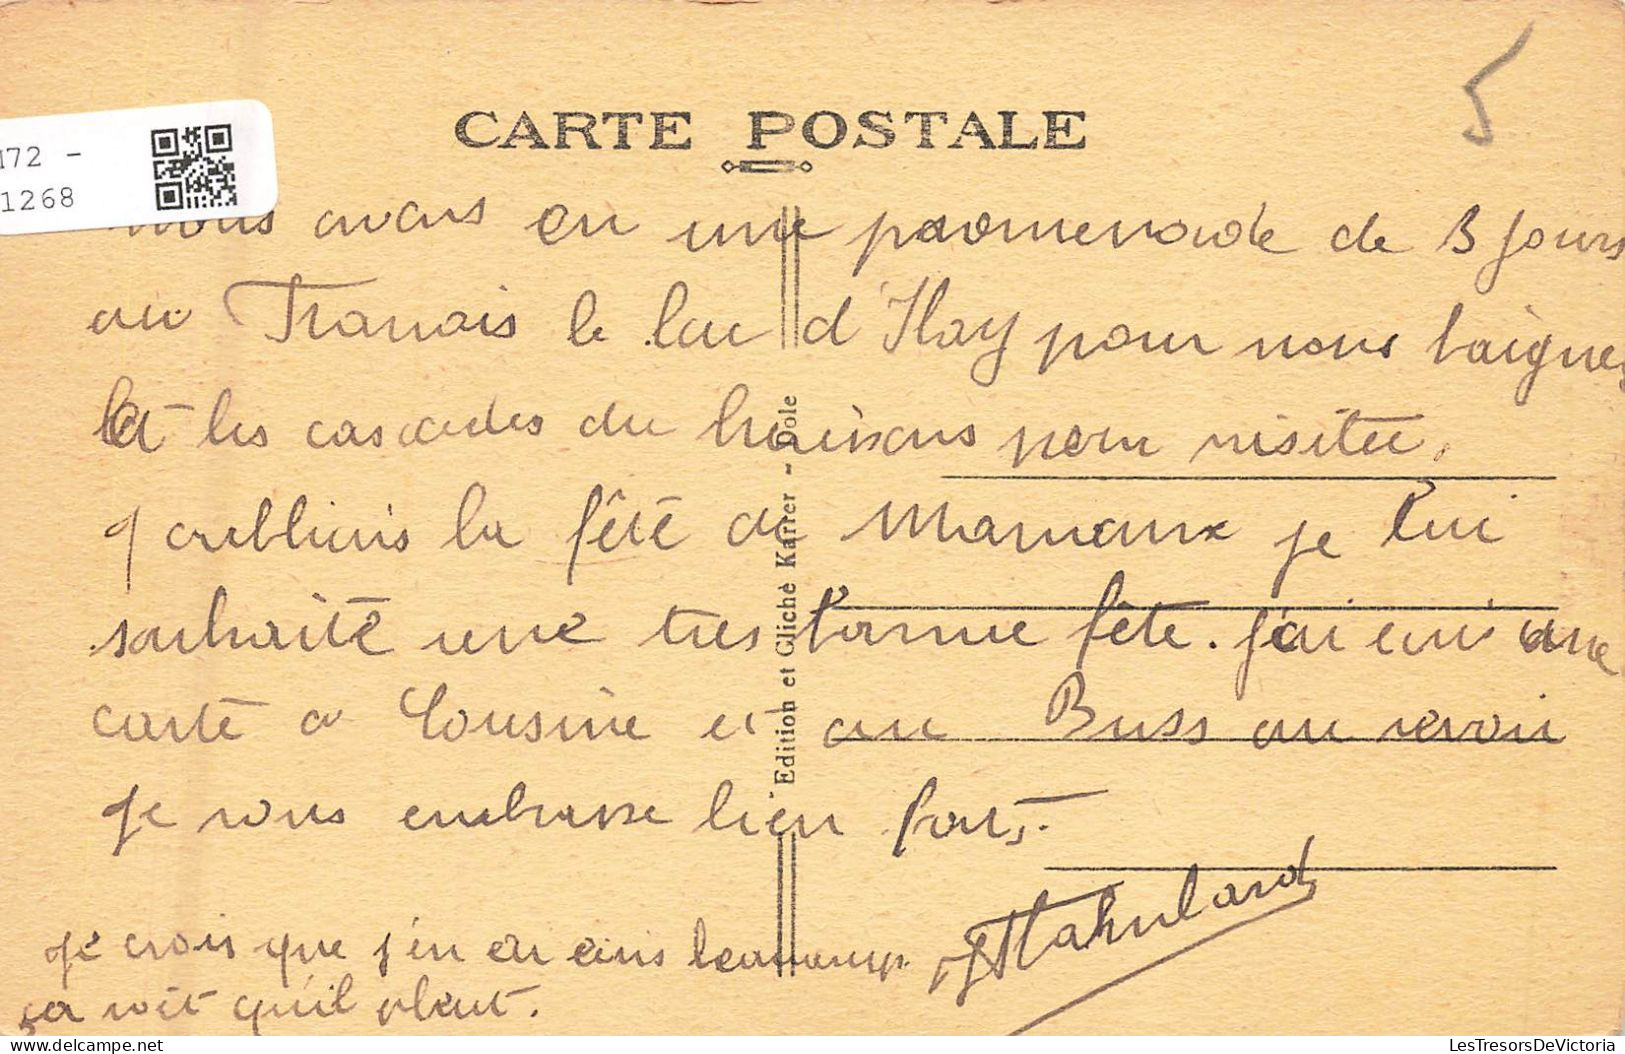 CARTE POSTALE
5
172 -
1268
nous avons eu une promenade de 3 jours
au Franois le lac d'Ilay pour nous baigner
et les cascades du hérisson pour visiter.
J'oubliais la fête de Maman je lui
souhaite une très bonne fête. J'ai écrit une
carte à Cousine et au Buss au revoir
Je vous embrasse bien fort.
Je crois que j'en ai écris beaucoup
ça voit qu'il pleut.
Edition et Cliché Karrer - Dole
delcampe.net
LesTresorsDeVictoria